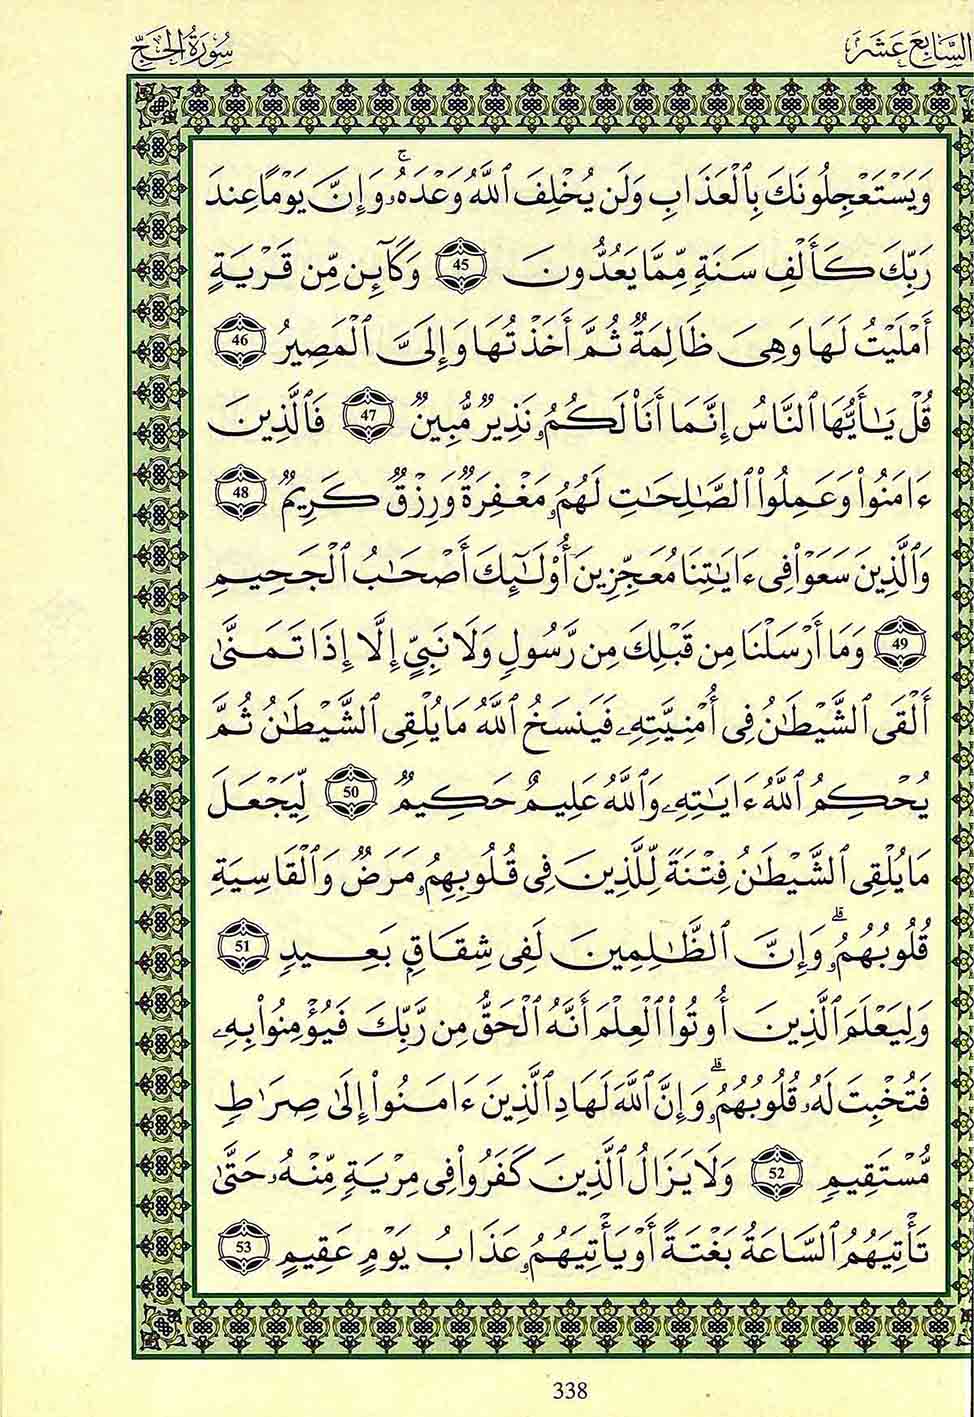 السَّابِعَ عَشَرَ
سُورَةُ الحَجِّ
وَيَسْتَعْجِلُونَكَ بِالْعَذَابِ وَلَن يُخْلِفَ اَ۬للَّهُ وَعْدَهُۥۚ وَإِنَّ يَوْماً عِندَ
رَبِّكَ كَأَلْفِ سَنَةٍ مِّمَّا يَعُدُّونَ 45 وَكَآئِن مِّن قَرْيَةٍ
أَمْلَيْتُ لَهَا وَهِىَ ظَالِمَةٌ ثُمَّ أَخَذْتُهَا وَإِلَىَّ اَ۬لْمَصِيرُ 46
قُلْ يَٰأَيُّهَا اَ۬لنَّاسُ إِنَّمَا أَنَا۠ لَكُمُۥ نَذِيرٌ مُّبِينٌ 47 فَالَّذِينَ
ءَامَنُواْ وَعَمِلُواْ اُ۬لصَّٰلِحَٰتِ لَهُمُۥ مَغْفِرَةٌ وَرِزْقٌ كَرِيمٌ 48
وَالَّذِينَ سَعَوْاْ فِى ءَايَٰتِنَا مُعَجِّزِينَ أُوْلَٰٓئِكَ أَصْحَٰبُ اُ۬لْجَحِيمِ
49 وَمَا أَرْسَلْنَا مِن قَبْلِكَ مِن رَّسُولٍ وَلَا نَبِىٍّ إِلَّا إِذَا تَمَنَّىٰ
أَلْقَى اَ۬لشَّيْطَٰنُ فِى أُمْنِيَّتِهِۦ فَيَنسَخُ اُ۬للَّهُ مَا يُلْقِى اِ۬لشَّيْطَٰنُ ثُمَّ
يُحْكِمُ اُ۬للَّهُ ءَايَٰتِهِۦ وَاللَّهُ عَلِيمٌ حَكِيمٌ 50 لِّيَجْعَلَ
مَا يُلْقِى اِ۬لشَّيْطَٰنُ فِتْنَةً لِّلَّذِينَ فِى قُلُوبِهِمُۥ مَرَضٌ وَالْقَاسِيَةِ
قُلُوبُهُمُۥۗ وَإِنَّ اَ۬لظَّٰلِمِينَ لَفِى شِقَاقٍ بَعِيدٍ 51
وَلِيَعْلَمَ اَ۬لَّذِينَ أُوتُواْ اُ۬لْعِلْمَ أَنَّهُ اُ۬لْحَقُّ مِن رَّبِّكَ فَيُؤْمِنُواْ بِهِۦ
فَتُخْبِتَ لَهُۥ قُلُوبُهُمُۥۗ وَإِنَّ اَ۬للَّهَ لَهَادِ اِ۬لَّذِينَ ءَامَنُواْ إِلَىٰ صِرَٰطٍ
مُّسْتَقِيمٍ 52 وَلَا يَزَالُ اُ۬لَّذِينَ كَفَرُواْ فِى مِرْيَةٍ مِّنْهُۥ حَتَّىٰ
تَأْتِيَهُمُ اُ۬لسَّاعَةُ بَغْتَةً أَوْ يَأْتِيَهُمُۥ عَذَابُ يَوْمٍ عَقِيمٍ 53
338